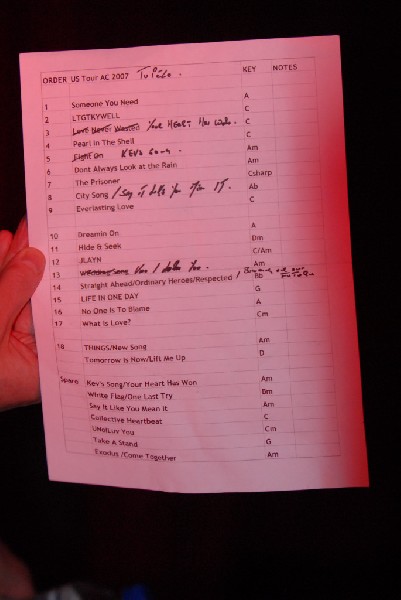 ORDER US Tour AC 2007 Tupelo. KEY NOTES
1 Someone You Need A
2 LTGTKYWELL C
3 Love Never Wasted Your HEART Has Won. C
4 Pearl In The Shell C
5 Fight On KEVS Song Am
6 Dont Always Look at the Rain Am
7 The Prisoner Csharp
8 City Song / Say it like You Mean IT. Ab
9 Everlasting Love C
10 Dreamin On A
11 Hide & Seek Dm
12 JLAYN C/Am
13 You I Am
14 Straight Ahead/Ordinary Heroes/Respected / Bb
15 LIFE IN ONE DAY G
16 No One Is To Blame A
17 What is Love? Cm
18 THINGS/New Song Am
Tomorrow is Now/Lift Me Up D
Spare Kev's Song/Your Heart Has Won Am
White Flag/One Last Try Bm
Say It Like You Mean It Am
Collective Heartbeat C
UNolLuv You Cm
Take A Stand G
Exodus /Come Together Am